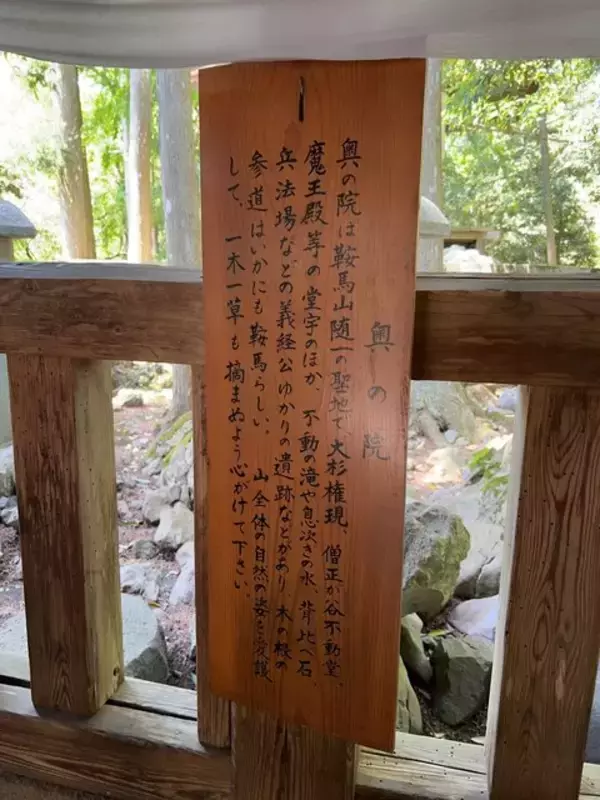 奥の院
奥の院は鞍馬山随一の聖地で、大杉権現、僧正が谷不動堂、
魔王殿等の堂宇のほか、不動の滝や息次ぎの水、背比べ石、
兵法場などの義経公ゆかりの遺跡などがあり、木の根の
参道はいかにも鞍馬らしい。山全体の自然の姿を愛護
して、一木一草も摘まぬよう心がけて下さい。